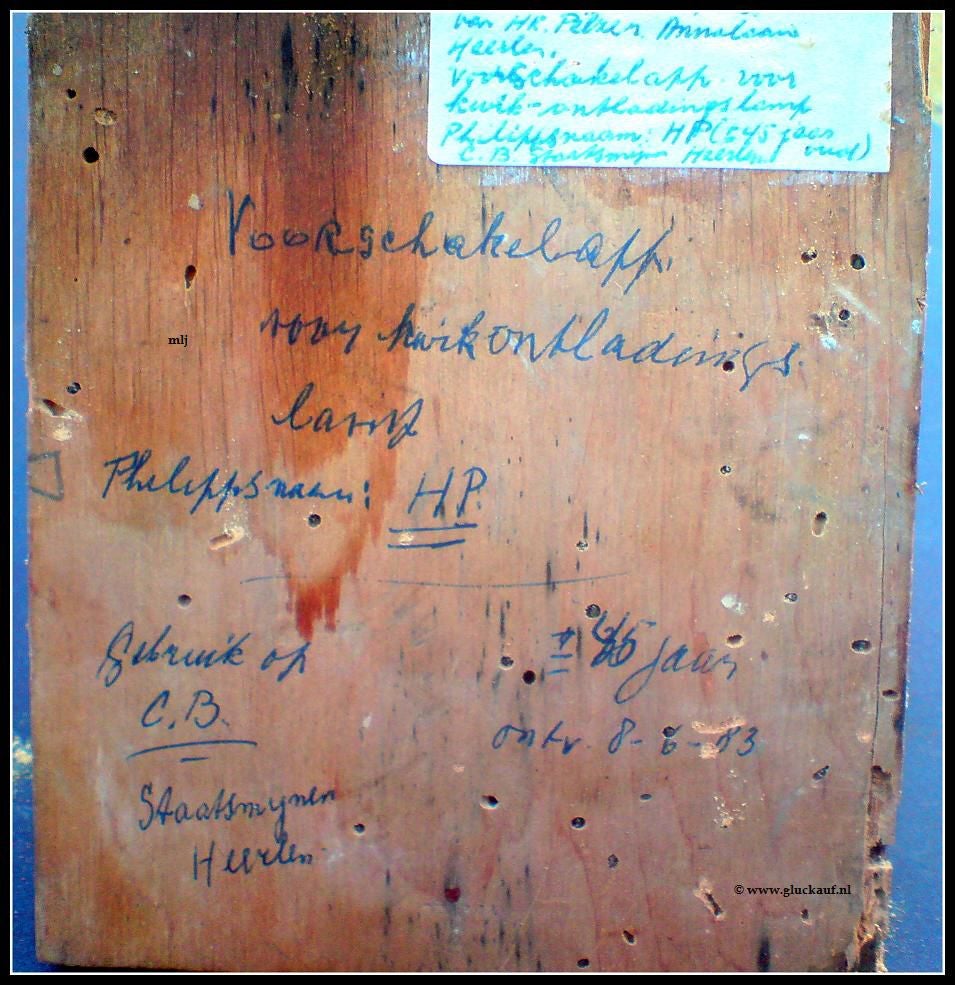 van HR. Pelzer Annalaan
Heerlen.
Voorschakelapp. voor
kwik-ontladingslamp
Philippsnaam: HP (±45 jaar
C.B. Staatsmijnen Heerlen oud)
Voorschakelapp.
voor kwikontladings
lamp
Philippsnaam: H.P.
Gebruik op ± 45 jaar
C.B. ontv. 8-6-83
Staatsmijnen
Heerlen
mlj
© www.gluckauf.nl